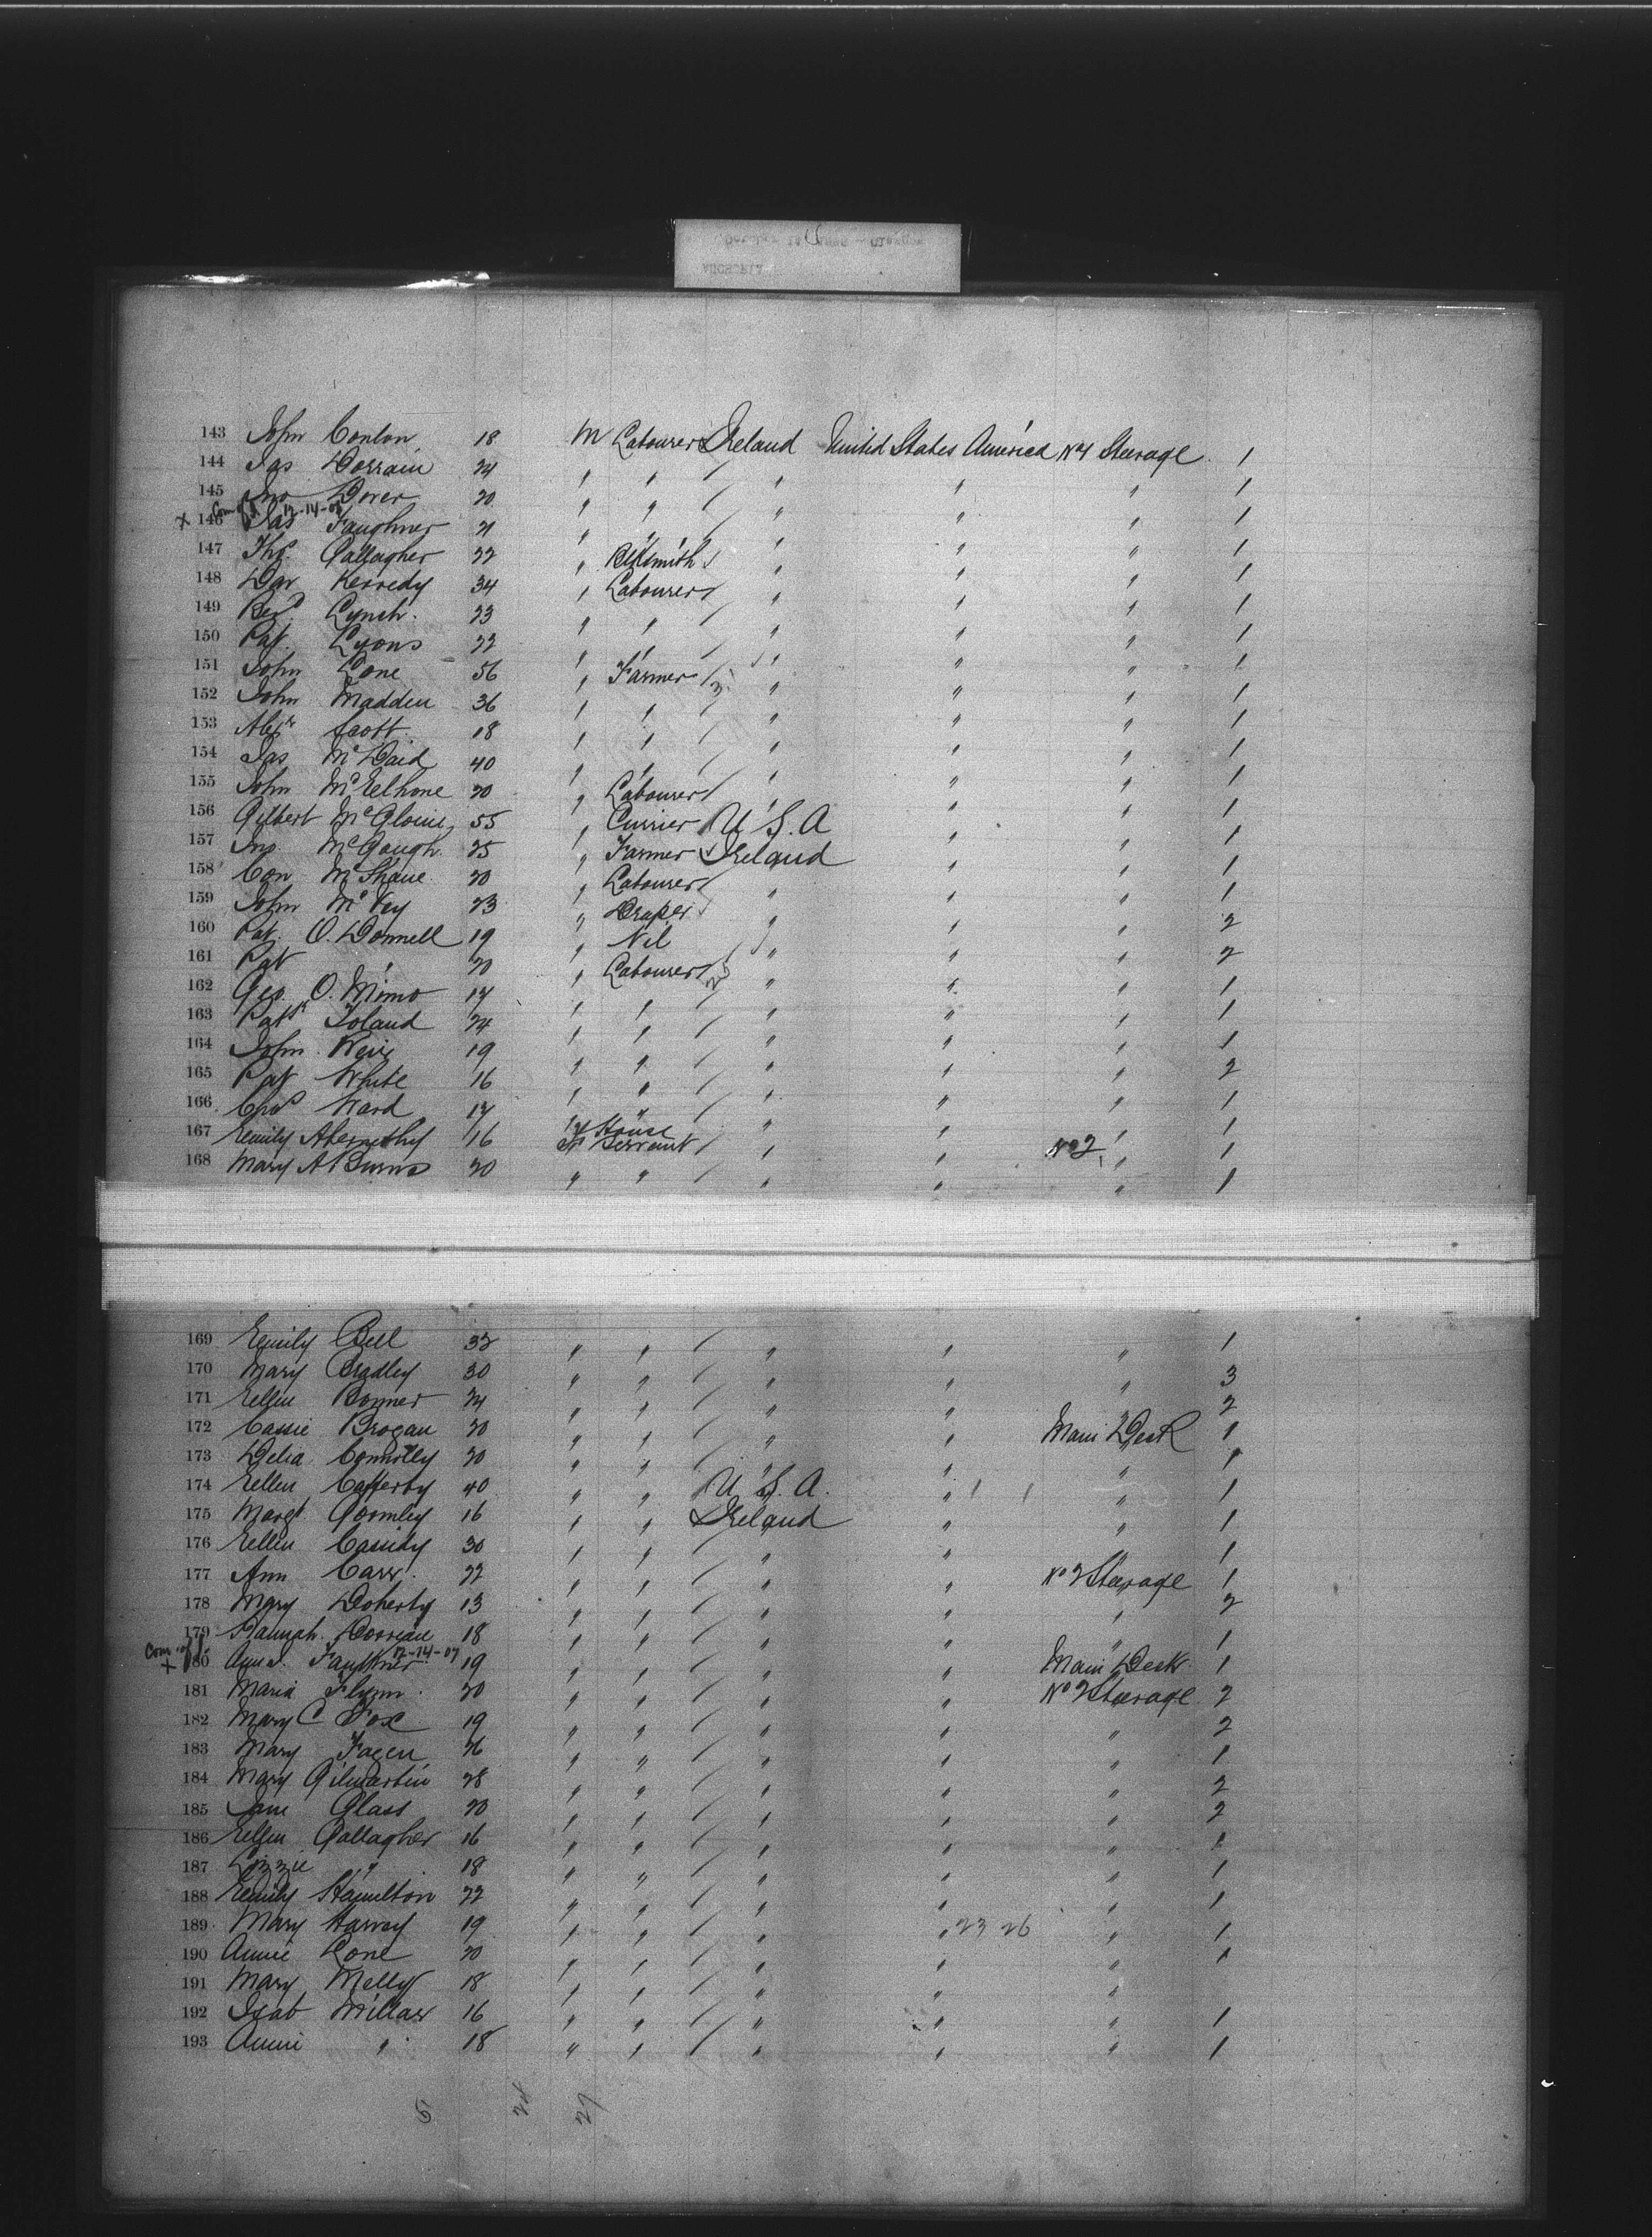 143 John Conlon 18 M Labourer Ireland United States America No 4 Steerage 1
144 Jas Dorrain 24 " " / " " " 1
145 Jno Dover 20 " " / " " " 1
+ Com of f 12-14-07
146 Jas Faughner 21 " " / " " " 1
147 Thos Gallagher 22 " Blksmith / " " " 1
148 Dan Kennedy 34 " Labourer / " " " 1
149 Lynch 23 " " / " " " 1
150 Pat. Lyons 22 " " / " " " 1
151 John Lone 56 " Farmer / " " " 1
152 John Madden 36 " " / " " " 1
153 Alexr Scott 18 " " / " " " 1
154 Jas McDaid 40 " " / " " " 1
155 John McElhone 20 " Labourer / " " " 1
156 Gilbert McGloin 55 " Currier U.S.A " " 1
157 Jno. McGough 25 " Farmer Ireland " " 1
158 Con McShane 20 " Labourer / " " " 1
159 John McVey 23 " Draper / " " " 1
160 Pat. O.Donnell 19 " Nil / " " " 2
161 Pat " 20 " Labourer / " " " 2
162 Geo. O. Mimo 17 " " / " " " 1
163 Patk Toland 24 " " / " " " 1
164 John Weir 19 " " / " " " 1
165 Pat White 16 " " / " " " 2
166 Chas Ward 17 " " / " " " 1
167 Emily Abernethy 16 F House Servant / " " No 2 " 1
168 Mary A Burns 20 " " / " " " 1
169 Emily Bell 32 " " / " " " 1
170 Mary Bradley 30 " " / " " " 3
171 Ellen Bonner 24 " " / " " " 2
172 Cassie Brogan 20 " " / " " Main Deck 1
173 Delia Connolly 20 " " / " " " 1
174 Ellen Cafferty 40 " " U.S.A. " " 1
175 Margt Gormley 16 " " Ireland " " 1
176 Ellen Cassidy 30 " " / " " " 1
177 Ann Carr 22 " " / " " No 2 Steerage 1
178 Mary Doherty 13 " " / " " " 2
179 Hannah Dorrian 18 " " / " " " 1
Com of f + 12-14-07
180 Annie Faughner 19 " " / " " Main Deck 1
181 Maria Flynn 20 " " / " " No 2 Steerage 2
182 Mary C Fox 19 " " / " " " 2
183 Mary Fagen 26 " " / " " " 1
184 Mary Gilmartin 28 " " / " " " 2
185 Jane Glass 20 " " / " " " 2
186 Ellen Gallagher 16 " " / " " " 1
187 Lizzie " 18 " " / " " " 1
188 Emily Hamilton 22 " " / " " " 1
189 Mary Harvey 19 " " / " " 23 26 " 1
190 Annie Lone 20 " " / " " " 1
191 Mary Melly 18 " " / " " "
192 Isab Millar 16 " " / " " " 1
193 Annie " 18 " " / " " " 1